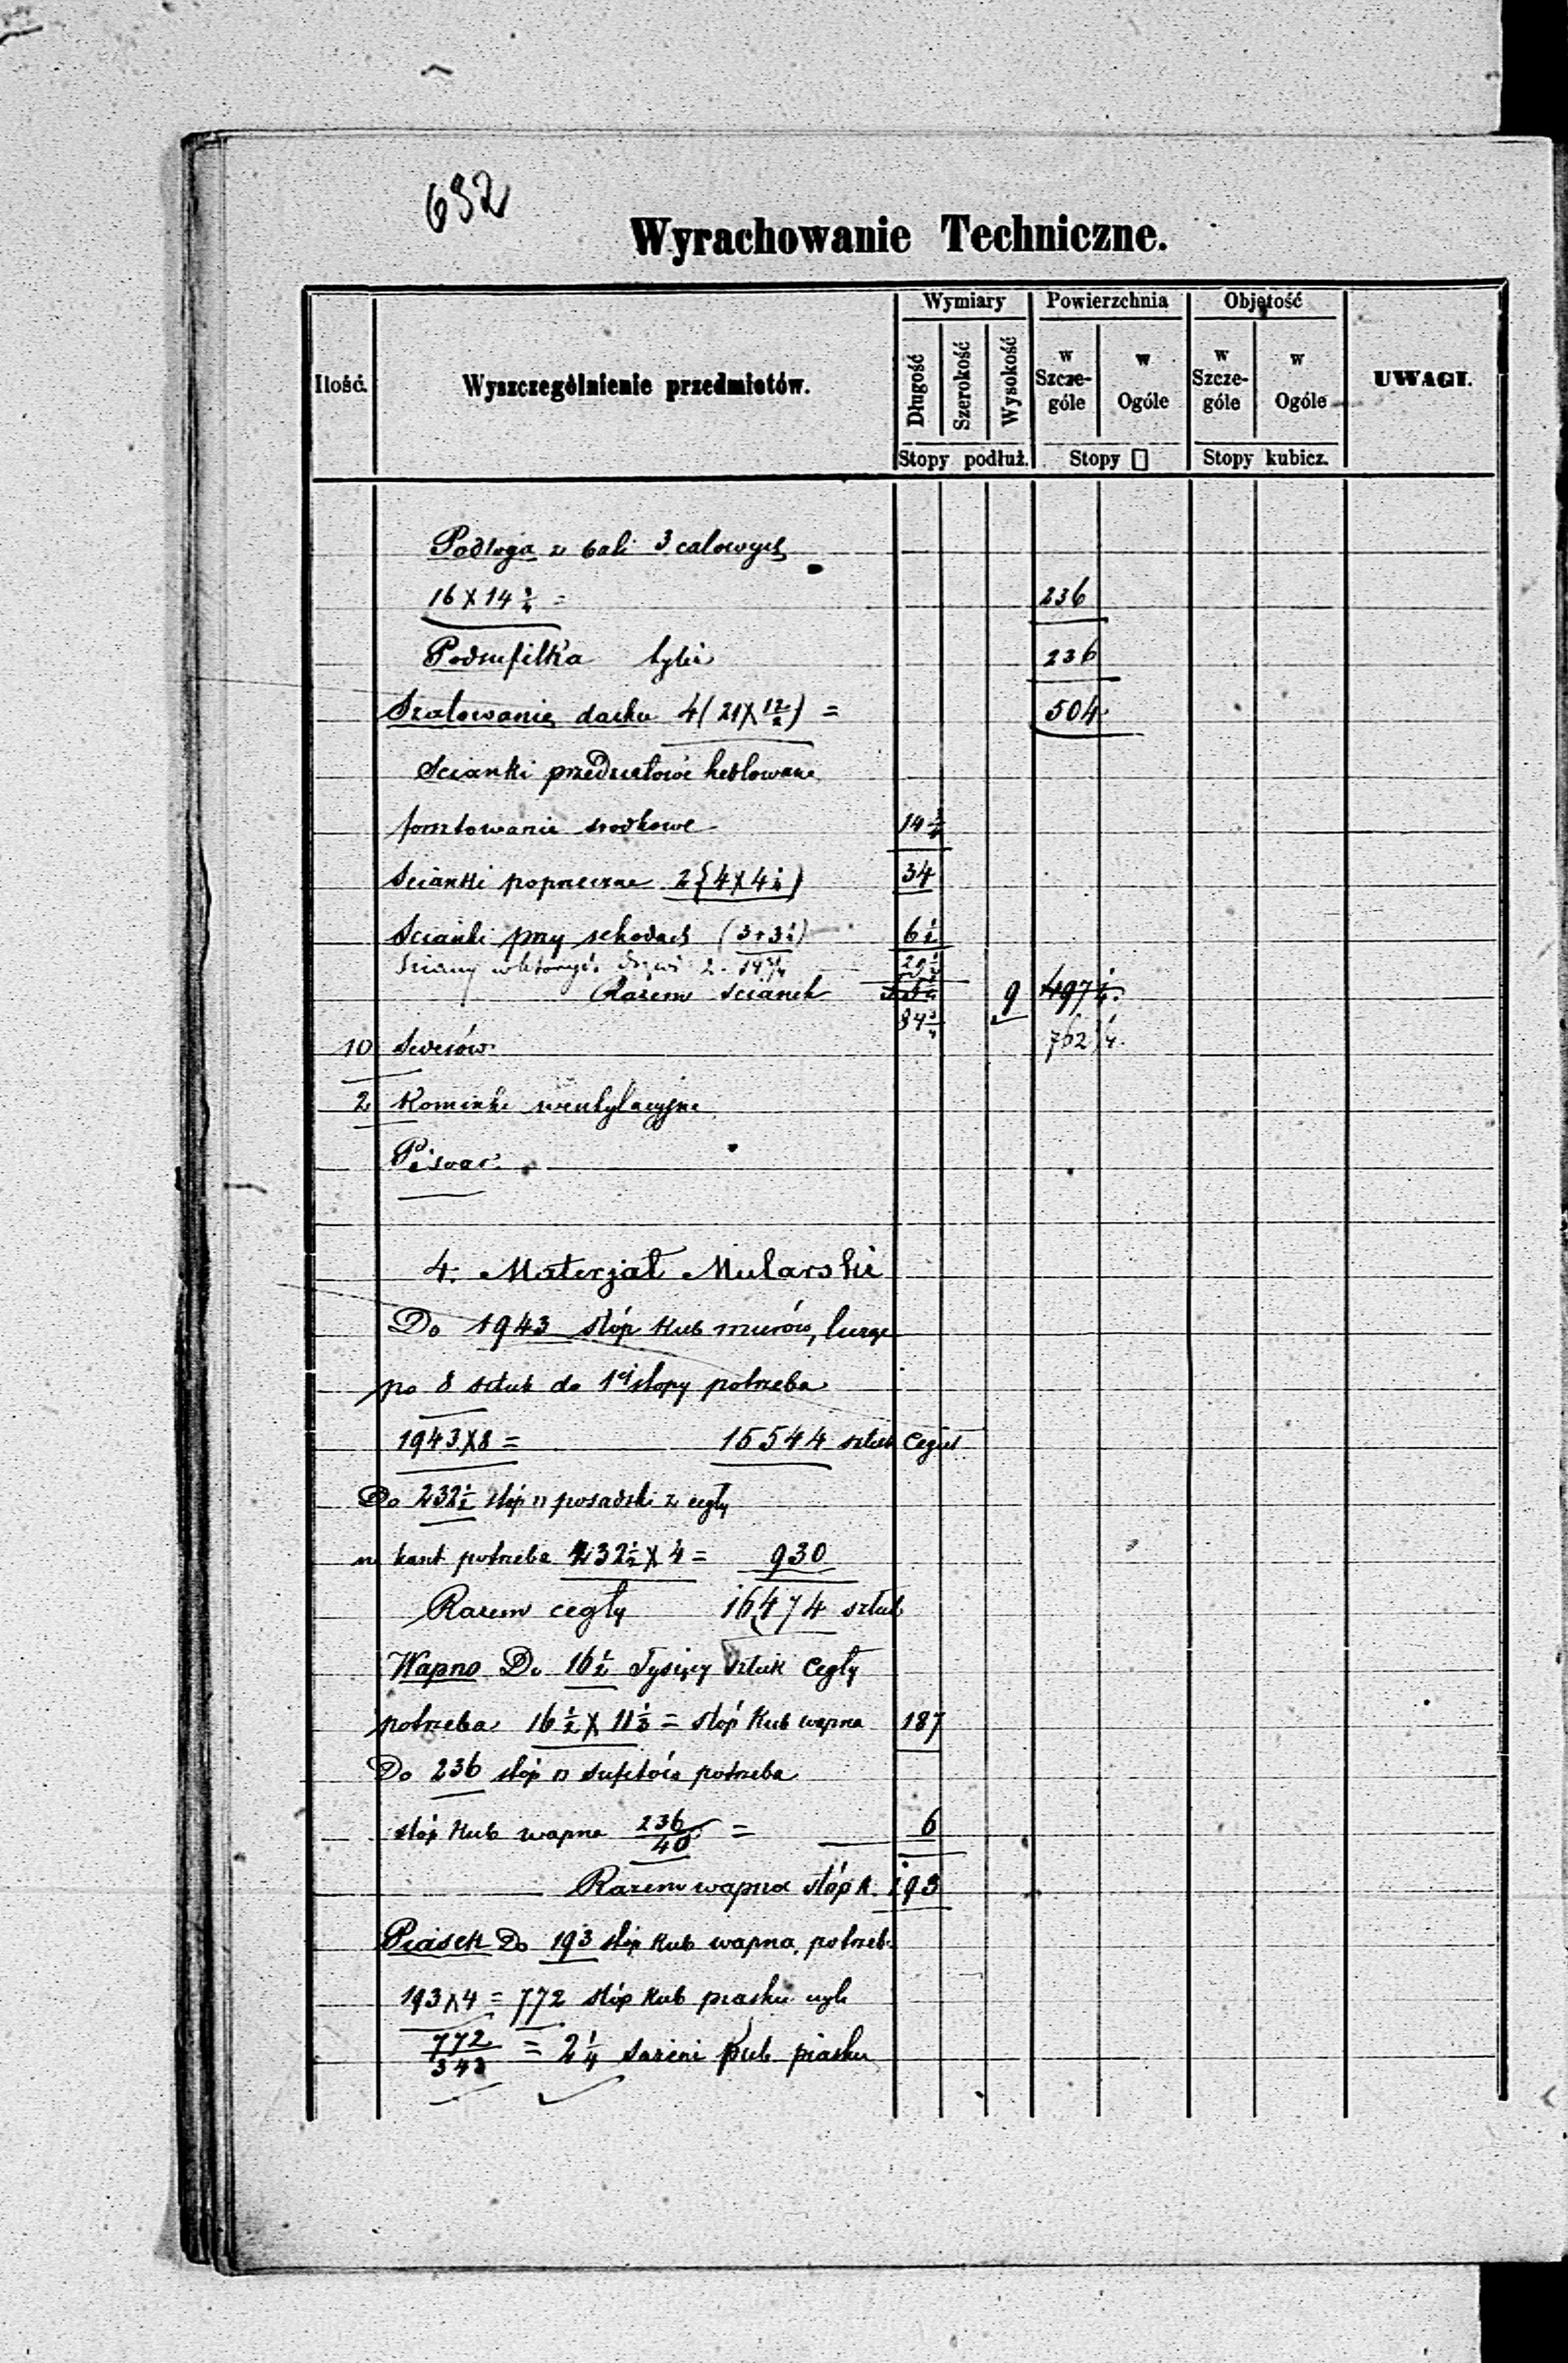 692
Wyrachowanie Techniczne.
Ilość.
Wyszczególnienie przedmiotów.
Wymiary
Długość
Szerokość
Wysokość
Stopy podłuż.
Powierzchnia
w Szcze-góle
w Ogóle
Stopy □
Objętość
w Szcze-góle
w Ogóle
Stopy kubicz.
UWAGI.
Podłoga z bali 3 calowych
16 X 14 3/4 = 236
Podsufitka tyleż 236
Szalowanie dachu 4 (21 X 12/2) = 504
Scianki przedziałowe heblowane
forsztowanie srodkowe 14 3/4
Scianki poprzeczne 2 (4 X 4 1/4) 34
Scianki przy schodach (3 + 3 1/2) 6 1/2
Sciany w których drzwi 2. 14 3/4 29 1/2
Razem scianek 9 497 1/4
84 3/4 762 3/4
10 Sedesów
2 Kominki wentylacyjne
Pisoar
4. Materjał Mularski
Do 1943 stóp kub murów, licząc
po 8 sztuk do 1ej stopy potrzeba
1943 X 8 = 15544 sztuk cegieł
Do 232 1/2 stóp □ posadzki z cegły
na kant potrzeba 232 1/2 X 4 = 930
Razem cegły 16474 sztuk
Wapno Do 16 1/2 Tysięcy sztuk Cegły
potrzeba 16 1/2 X 11 1/3 = stóp Kub wapna 187
Do 236 stóp □ sufitów potrzeba
stóp Kub wapna 236/40 = 6
Razem wapna stóp k. 193
Piasek Do 193 stóp Kub wapna, potrzeb.
193 X 4 = 772 stóp Kub piasku czyli
772/343 = 2 1/4 sążeni kub piasku